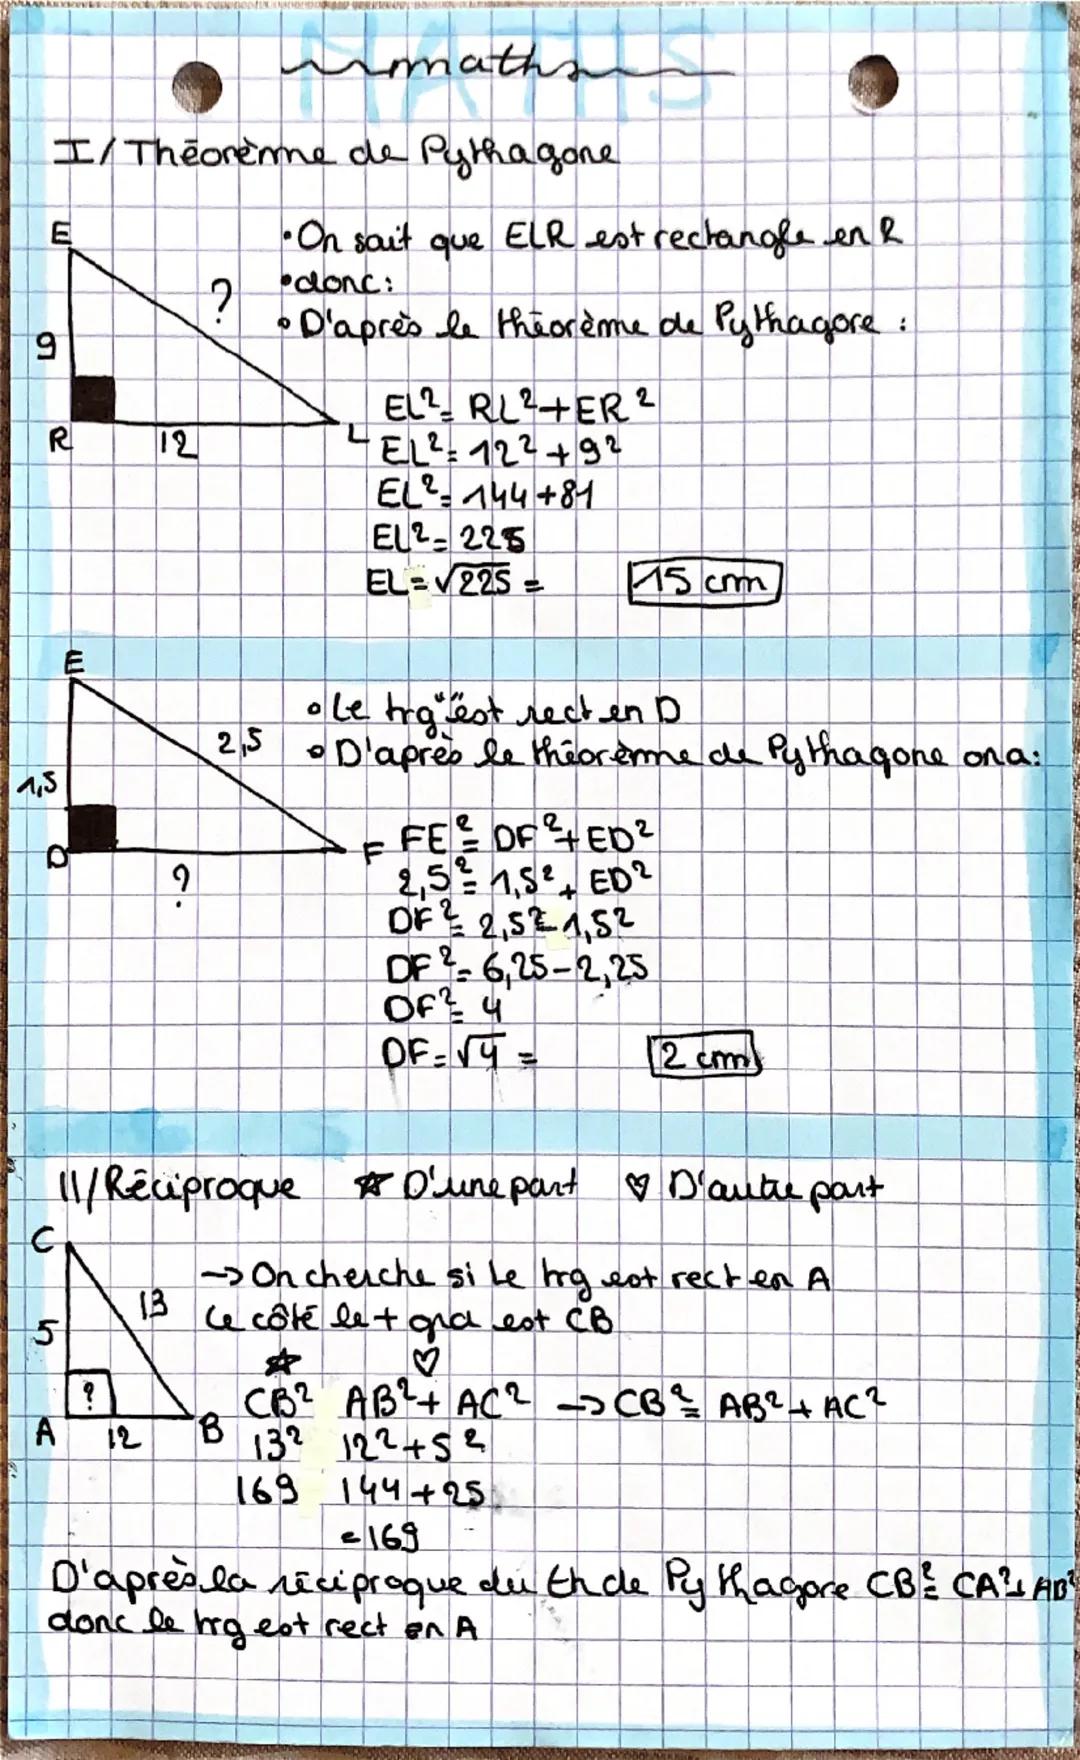 MATHS
maths
I/ Théorème de Pythagore
E
9
?
R
12
L
•On sait que ELR est rectangle en R
•donc:
•D'après le théorème de Pythagore :
EL²= RL²+ER²
EL²= 12²+9²
EL²= 144+81
EL²= 225
EL=√225 = 15 cm
E
1,5
2,5
D
?
F
•Le trg " " est rect en D
•D'après le théorème de Pythagore on a:
FE²= DF²+ED²
2,5²= 1,5²+ ED²
DF²= 2,5²-1,5²
DF²= 6,25-2,25
DF²= 4
DF=√4 = 2 cm
II/Réciproque ☆ D'une part ♡ D'autre part
C
5
13
?
A
12
B
→ On cherche si le trg est rect en A
Le côté le + grd est CB
☆ ♡
CB² AB²+ AC² → CB²= AB²+ AC²
13² 12²+5²
169 144+25
=169
D'après la réciproque du th de Pythagore CB²= CA²+AB²
donc le trg est rect en A